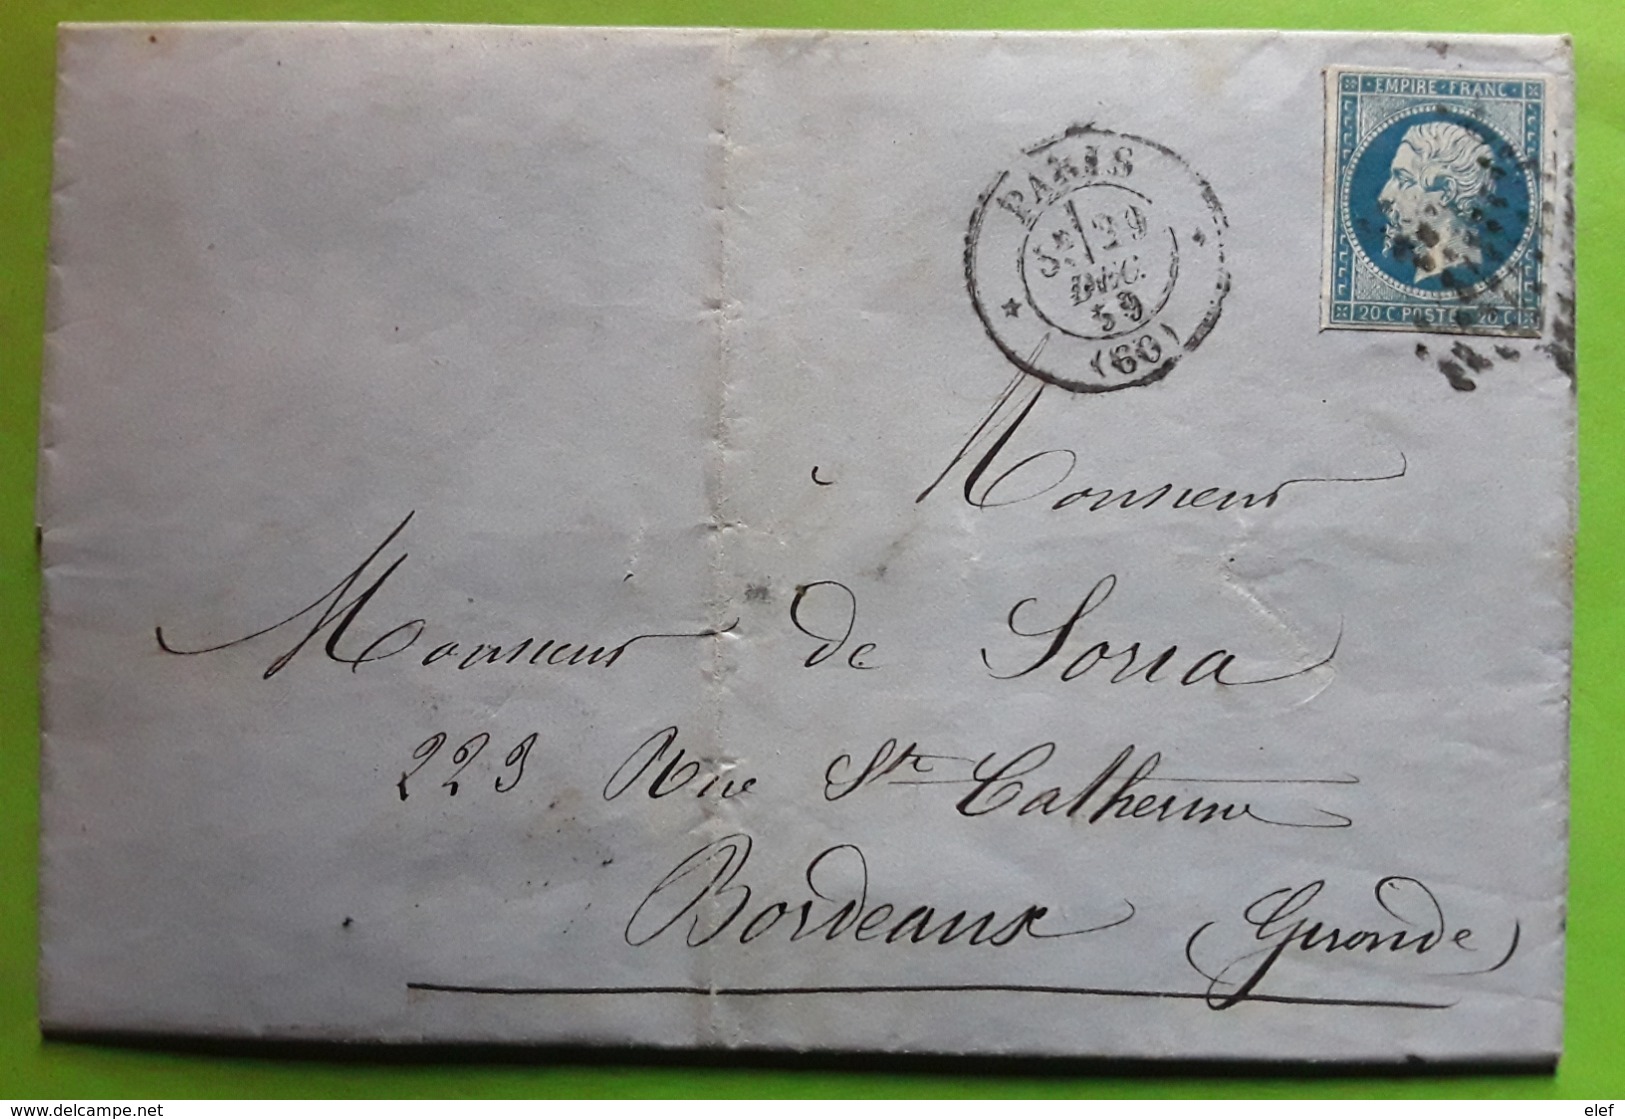 · EMPIRE · FRANC ·
20 C POSTE 20 C
PARIS
29
DEC.
59
(60)
Monsieur
Monsieur de Soria
223 Rue Ste Catherine
Bordeaux (Gironde)
www.delcampe.net
elef